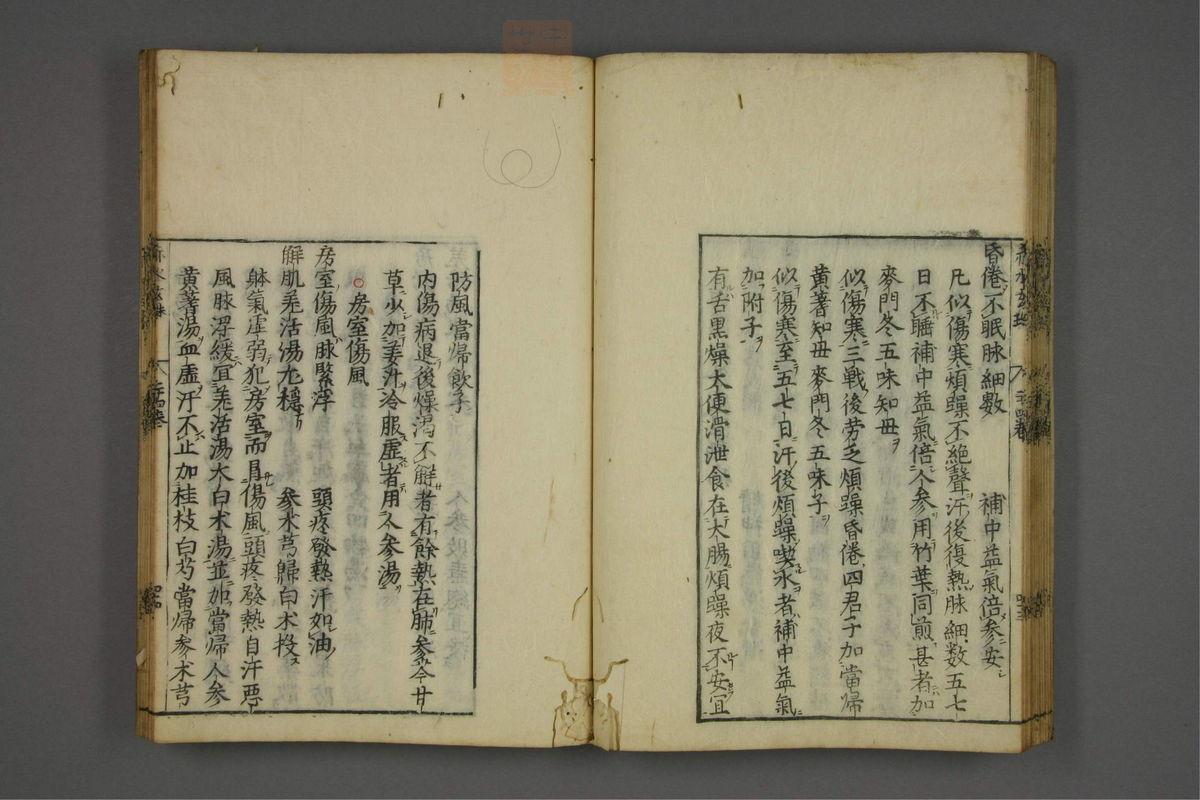 昏倦不眠脉細数 補中益氣倍参安
凡似傷寒煩躁不絶聲汗後復熱脉細数五七
日不睡補中益氣倍人参用竹葉同煎甚者加
麥門冬五味知母
似傷寒三戰後労乏煩躁昏倦四君子加當歸
黄蓍知母麥門冬五味子
似傷寒至五七日汗後煩躁喫水者補中益氣
加附子
有舌黒燥大便滑泄食在大腸煩躁夜不安宜
防風當歸飲子
内傷病退後燥渇不解者有餘熱在肺参苓甘
草少加姜汁冷服虚者用人参湯
○房室傷風
房室傷風脉緊浮 頭疼發熱汗如油
解肌羌活湯尤穏 参朮芎歸白朮投
躰氣虚弱犯房室而肩傷風頭疼發熱自汗悪
風脉浮緩宜羌活湯大白朮湯並加當歸人参
黄蓍湯血虚汗不止加桂枝白芍當歸参朮芎